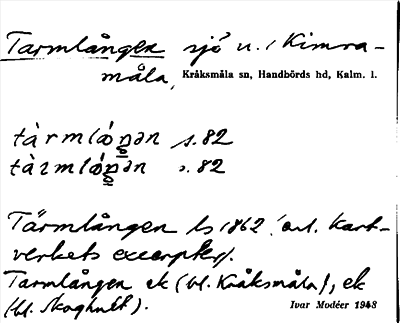 Tarmlången sjö u. Kimra-
måla, Kråksmåla sn, Handbörds hd, Kalm. l.
tàrmlåŋ̊ən s. 82
tàrmlåŋ̊ən s. 82
Tärmlången ls 1862 (enl. Kart-
verkets excerpter).
Tarmlången ek (bl. Kråksmåla), ek
(bl. Skoghult).
Ivar Modéer 1943